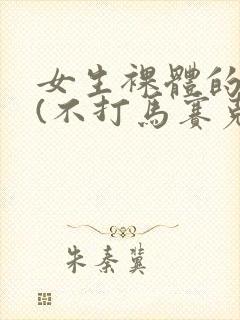 女生裸體的
(不打馬賽克
朱秦冀